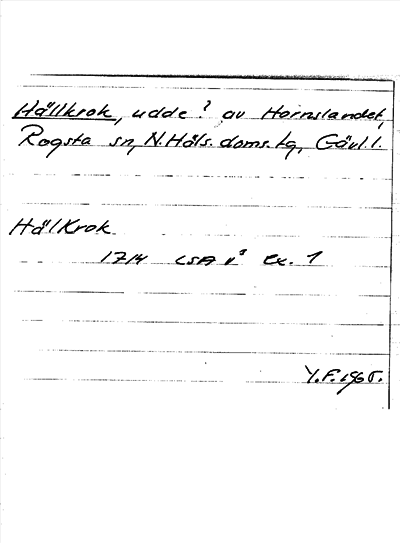 Hällkrok, udde? av Hornslandet,
Rogsta sn, N.Häls. doms. tg, Gävl. l.
HälKrok
1714 LSA ex. 1
Y.F. 1965.